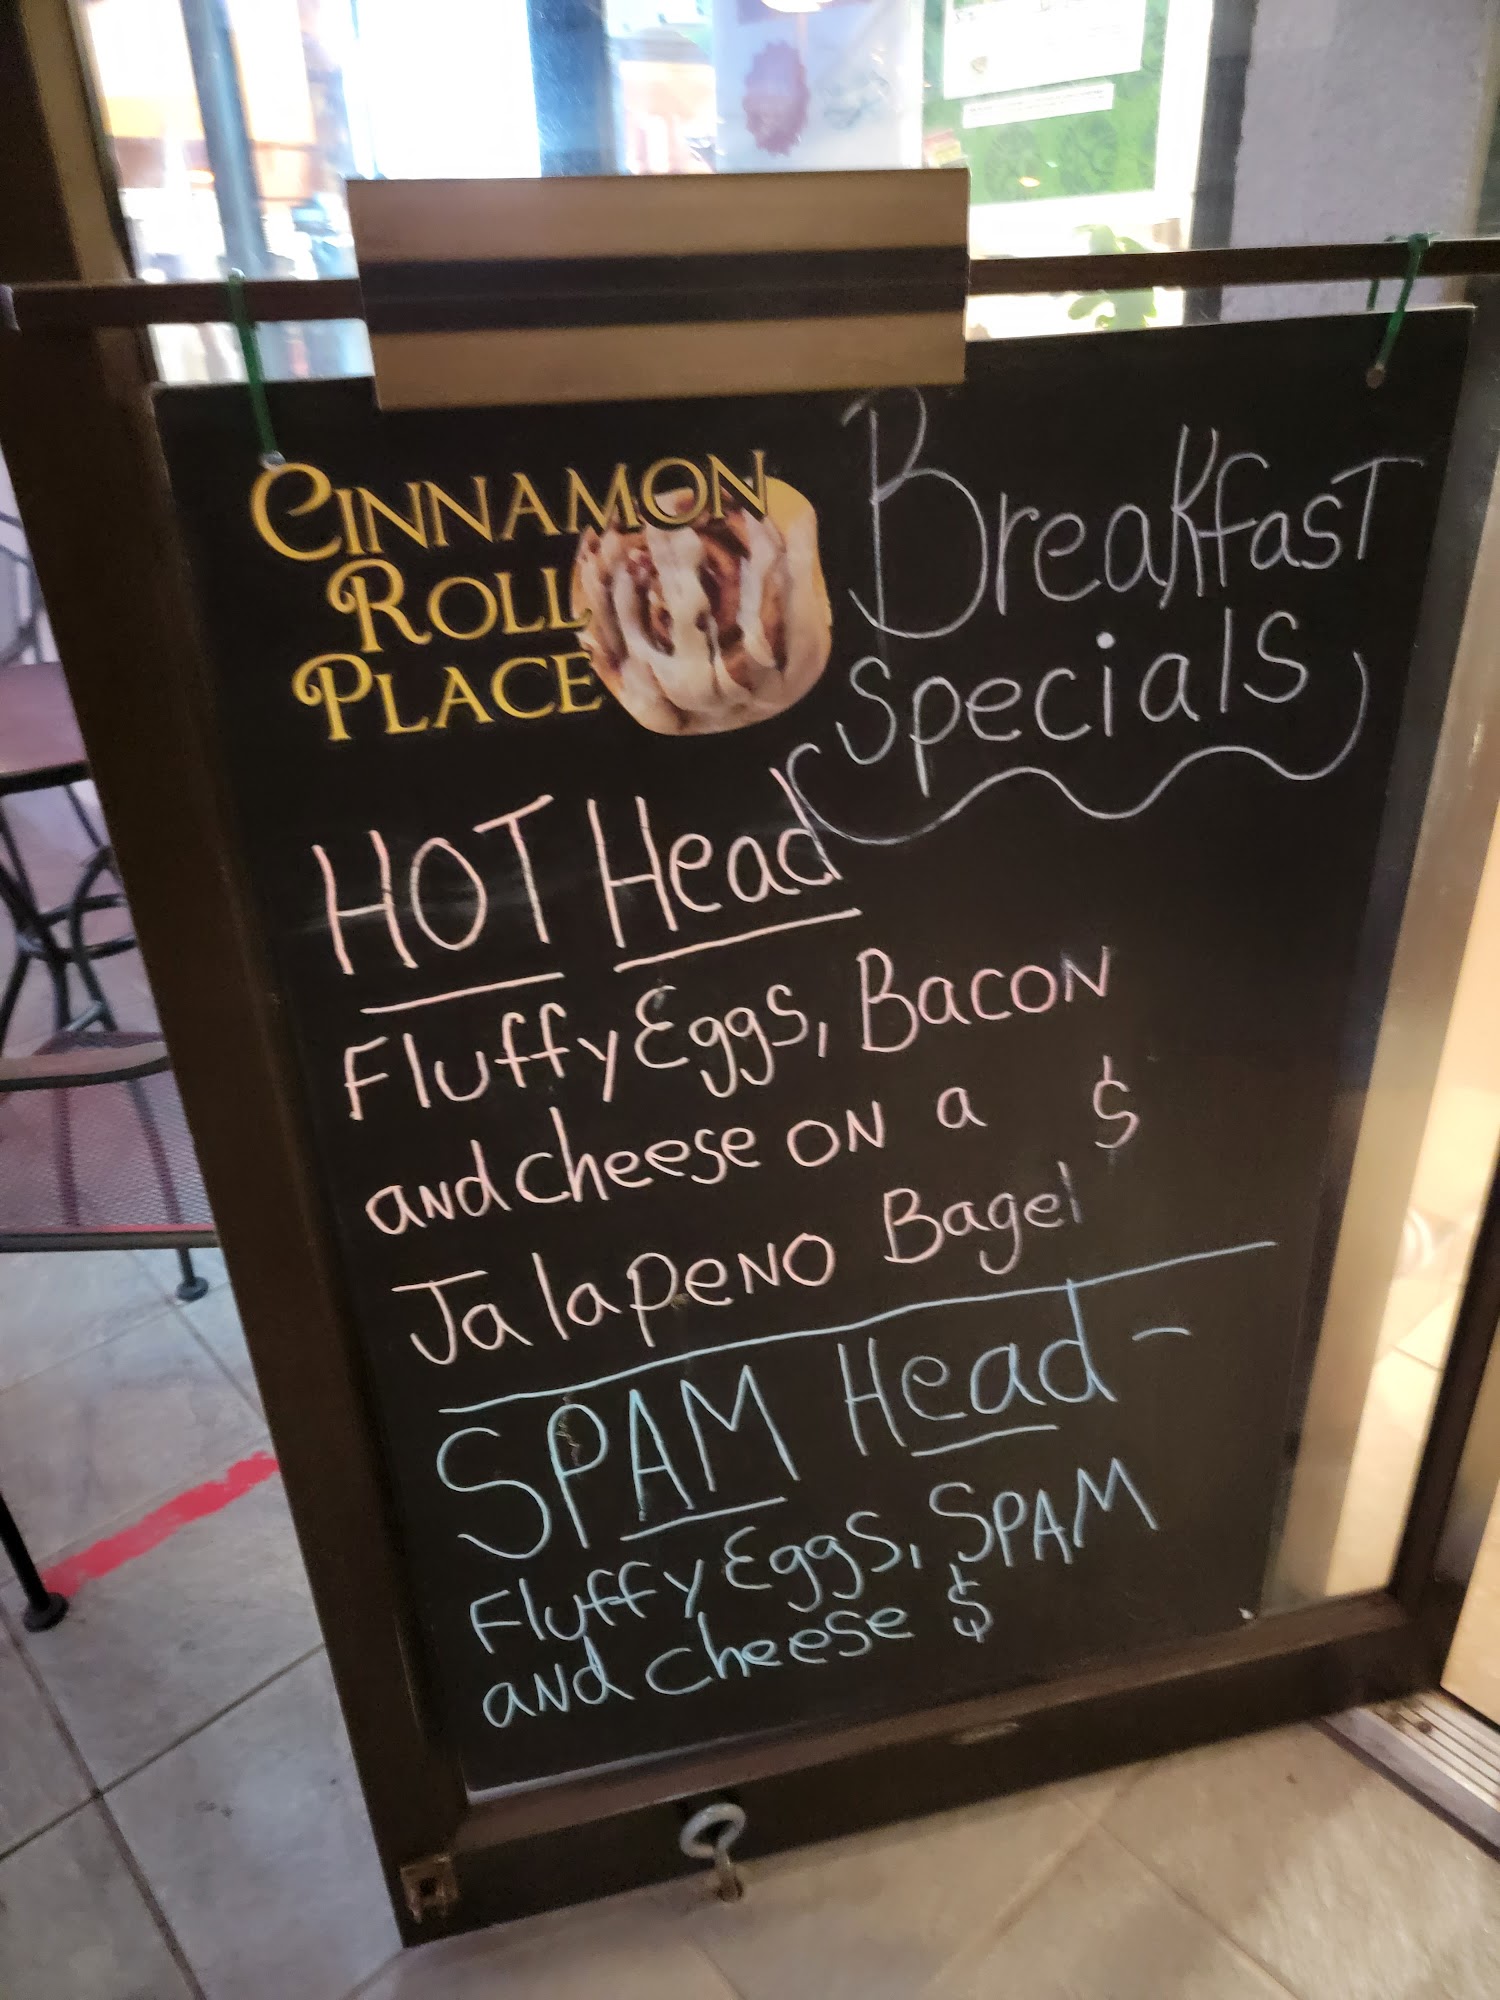 CINNAMON
ROLL
PLACE
Breakfast
Specials
HOT Head
Fluffy Eggs, Bacon
and cheese on a $
Jalapeno Bagel
SPAM Head -
Fluffy Eggs, SPAM
and cheese $